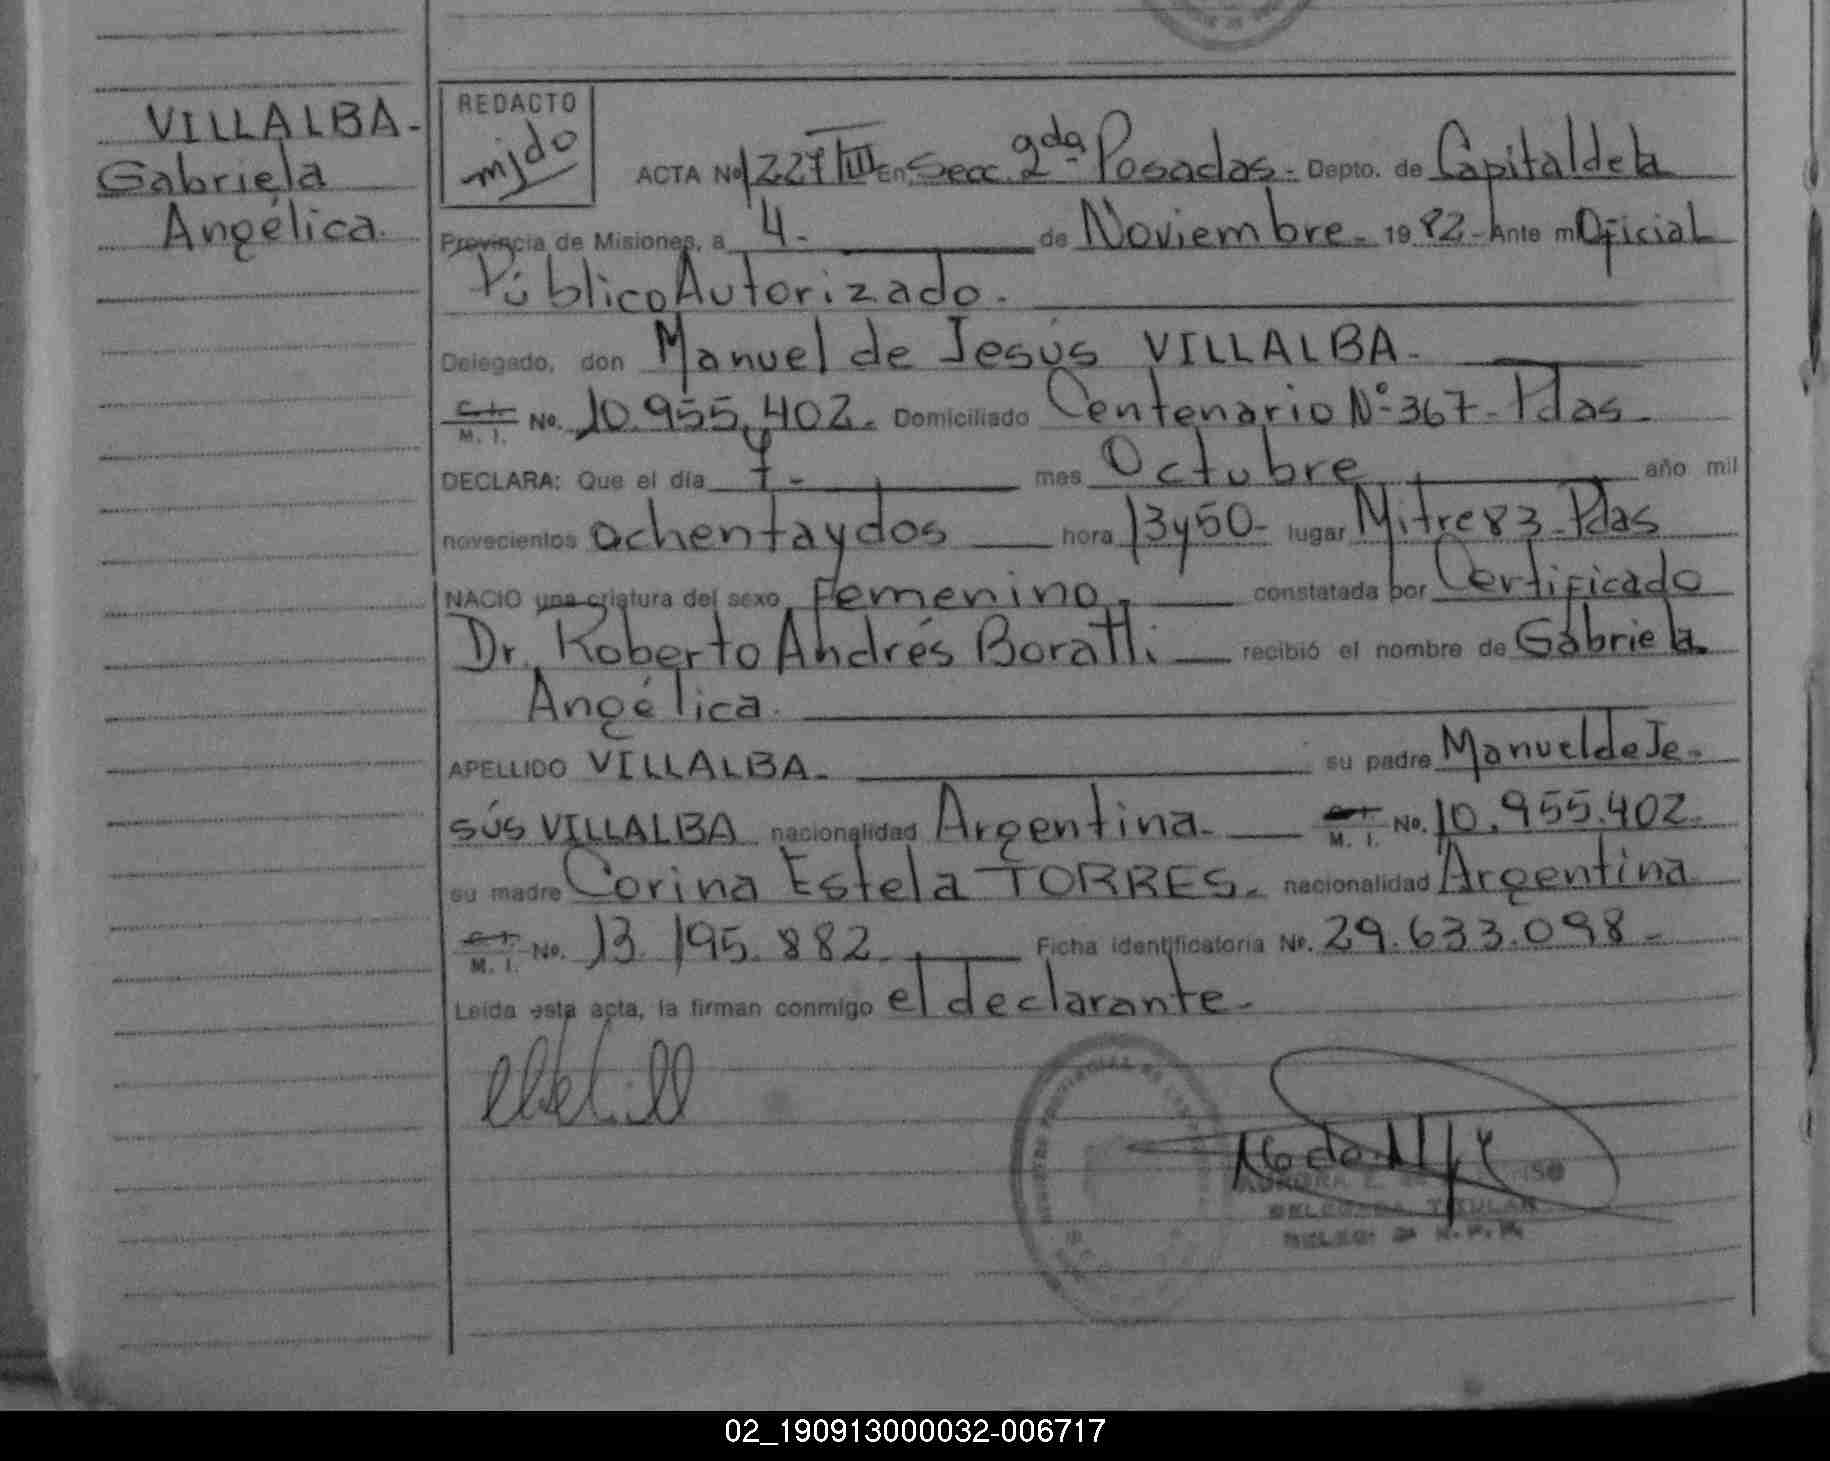 VILLALBA-
Gabriela
Angélica.
REDACTO
ACTA Nº 1227 III En Secc. 2da Posadas- Depto. de Capital de la
Provincia de Misiones, a 4- de Noviembre- 1982- Ante mí Oficial
Público Autorizado.
Delegado, don Manuel de Jesús VILLALBA-
C.I. M. I. No. 10.955.402- Domiciliado Centenario Nº 367- Pdas-
DECLARA: Que el día 7- mes Octubre año mil
novecientos ochenta y dos hora 13 y 50- lugar Mitre 83- Pdas
NACIO una criatura del sexo Femenino- constatada por Certificado
Dr. Roberto Andrés Boratti. recibió el nombre de Gabriela
Angélica.
APELLIDO VILLALBA- su padre Manuel de Je-
sús VILLALBA nacionalidad Argentina- C.I. M. I. No. 10.955.402-
su madre Corina Estela TORRES- nacionalidad Argentina
C.I. M. I. No. 13.195.882- Ficha identificatoria Nº. 29.633.098-
Leída esta acta, la firman conmigo el declarante-
AURORA E.
DELEGADA TITULAR
02_190913000032-006717